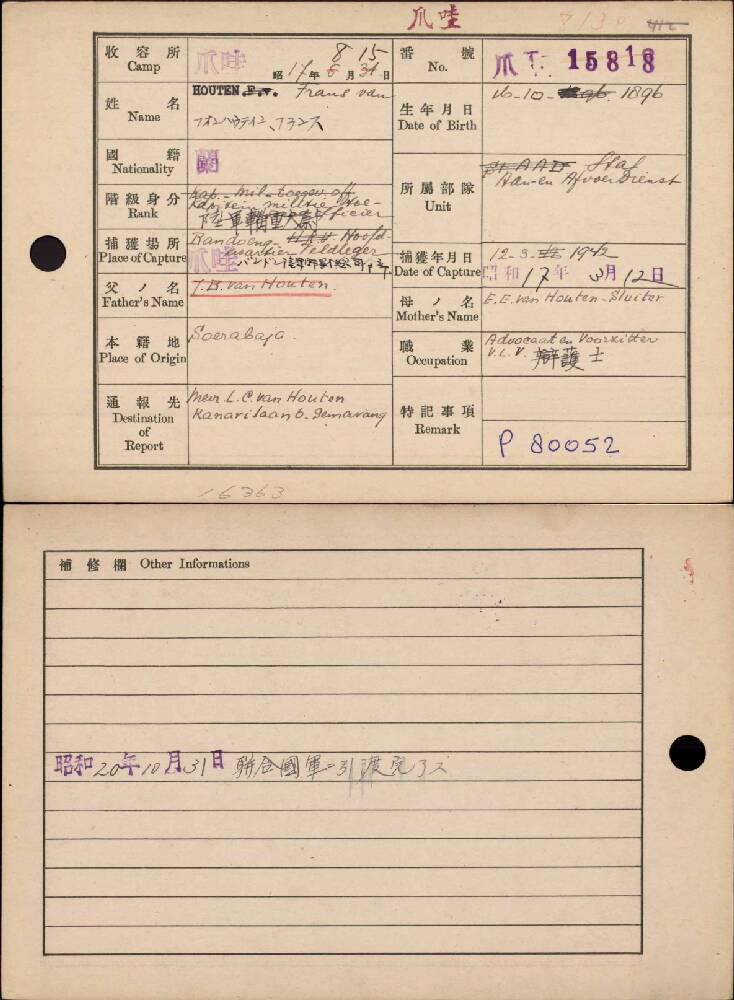 爪哇
8130 412
收容所
Camp
爪哇
8 15
昭 17 年 8 月 31 日
番號
No.
爪 T. 15818
姓名
Name
HOUTEN F.v. Frans van
フオンハウテイン、フランス
生年月日
Date of Birth
16-10- 1896
國籍
Nationality
蘭
階級身分
Rank
Kap. mil. toegev. off
Kapitein militie Toe-
陸軍輜重大尉 ficier
所屬部隊
Unit
STAAD Staf
Aan-en Afvoer Dienst
捕獲場所
Place of Capture
Bandoeng - Hoofd-
kwartier Veldleger
爪哇 バンドン
捕獲年月日
Date of Capture
12-3- 1942
昭和 17 年 3 月 12 日
父ノ名
Father's Name
T.B. van Houten.
母ノ名
Mother's Name
E.E. van Houten-Sluiter
本籍地
Place of Origin
Soerabaja.
職業
Occupation
Advocaat en Voorzitter
V.L.V. 辯護士
通報先
Destination
of
Report
Mevr. L.C. van Houten
Kanarilaan 6. Semarang
特記事項
Remark
P 80052
16363
補修欄 Other Informations
昭和 20 年 10 月 31 日 聯合國軍ニ引渡完了ス